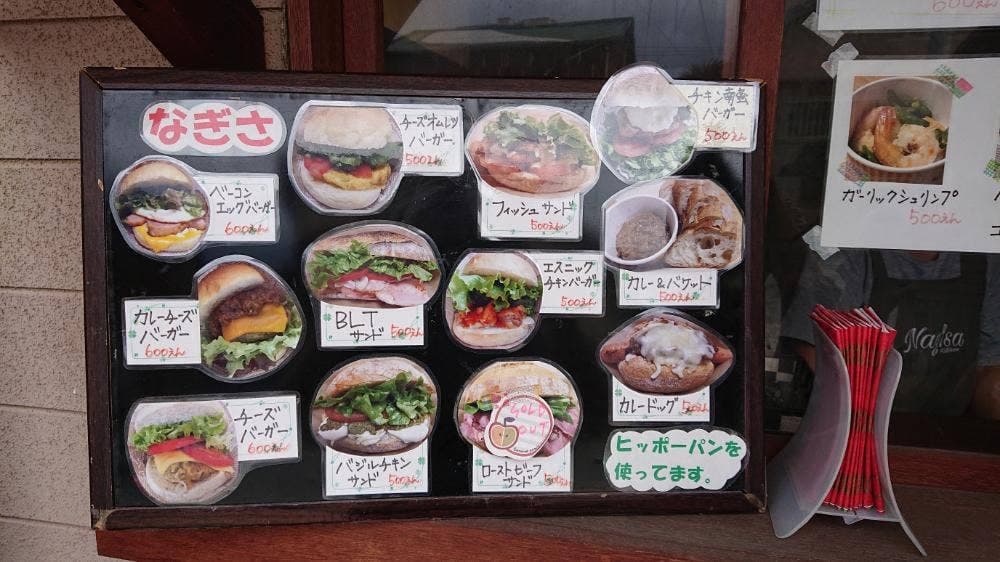 なぎさ
ベーコン
エッグバーガー
600えん
チーズオムレツ
バーガー
500えん
フィッシュサンド
500えん
チキン南蛮
バーガー
500えん
カレーチーズ
バーガー
600えん
BLT
サンド
500えん
エスニック
チキンバーガー
500えん
カレー&バゲット
500えん
チーズ
バーガー
600えん
バジルチキン
サンド
500えん
SOLD
OUT
ローストビーフ
サンド
カレードッグ
ヒッポーパンを
使ってます。
600えん
ガーリックシュリンプ
500えん
Nagisa